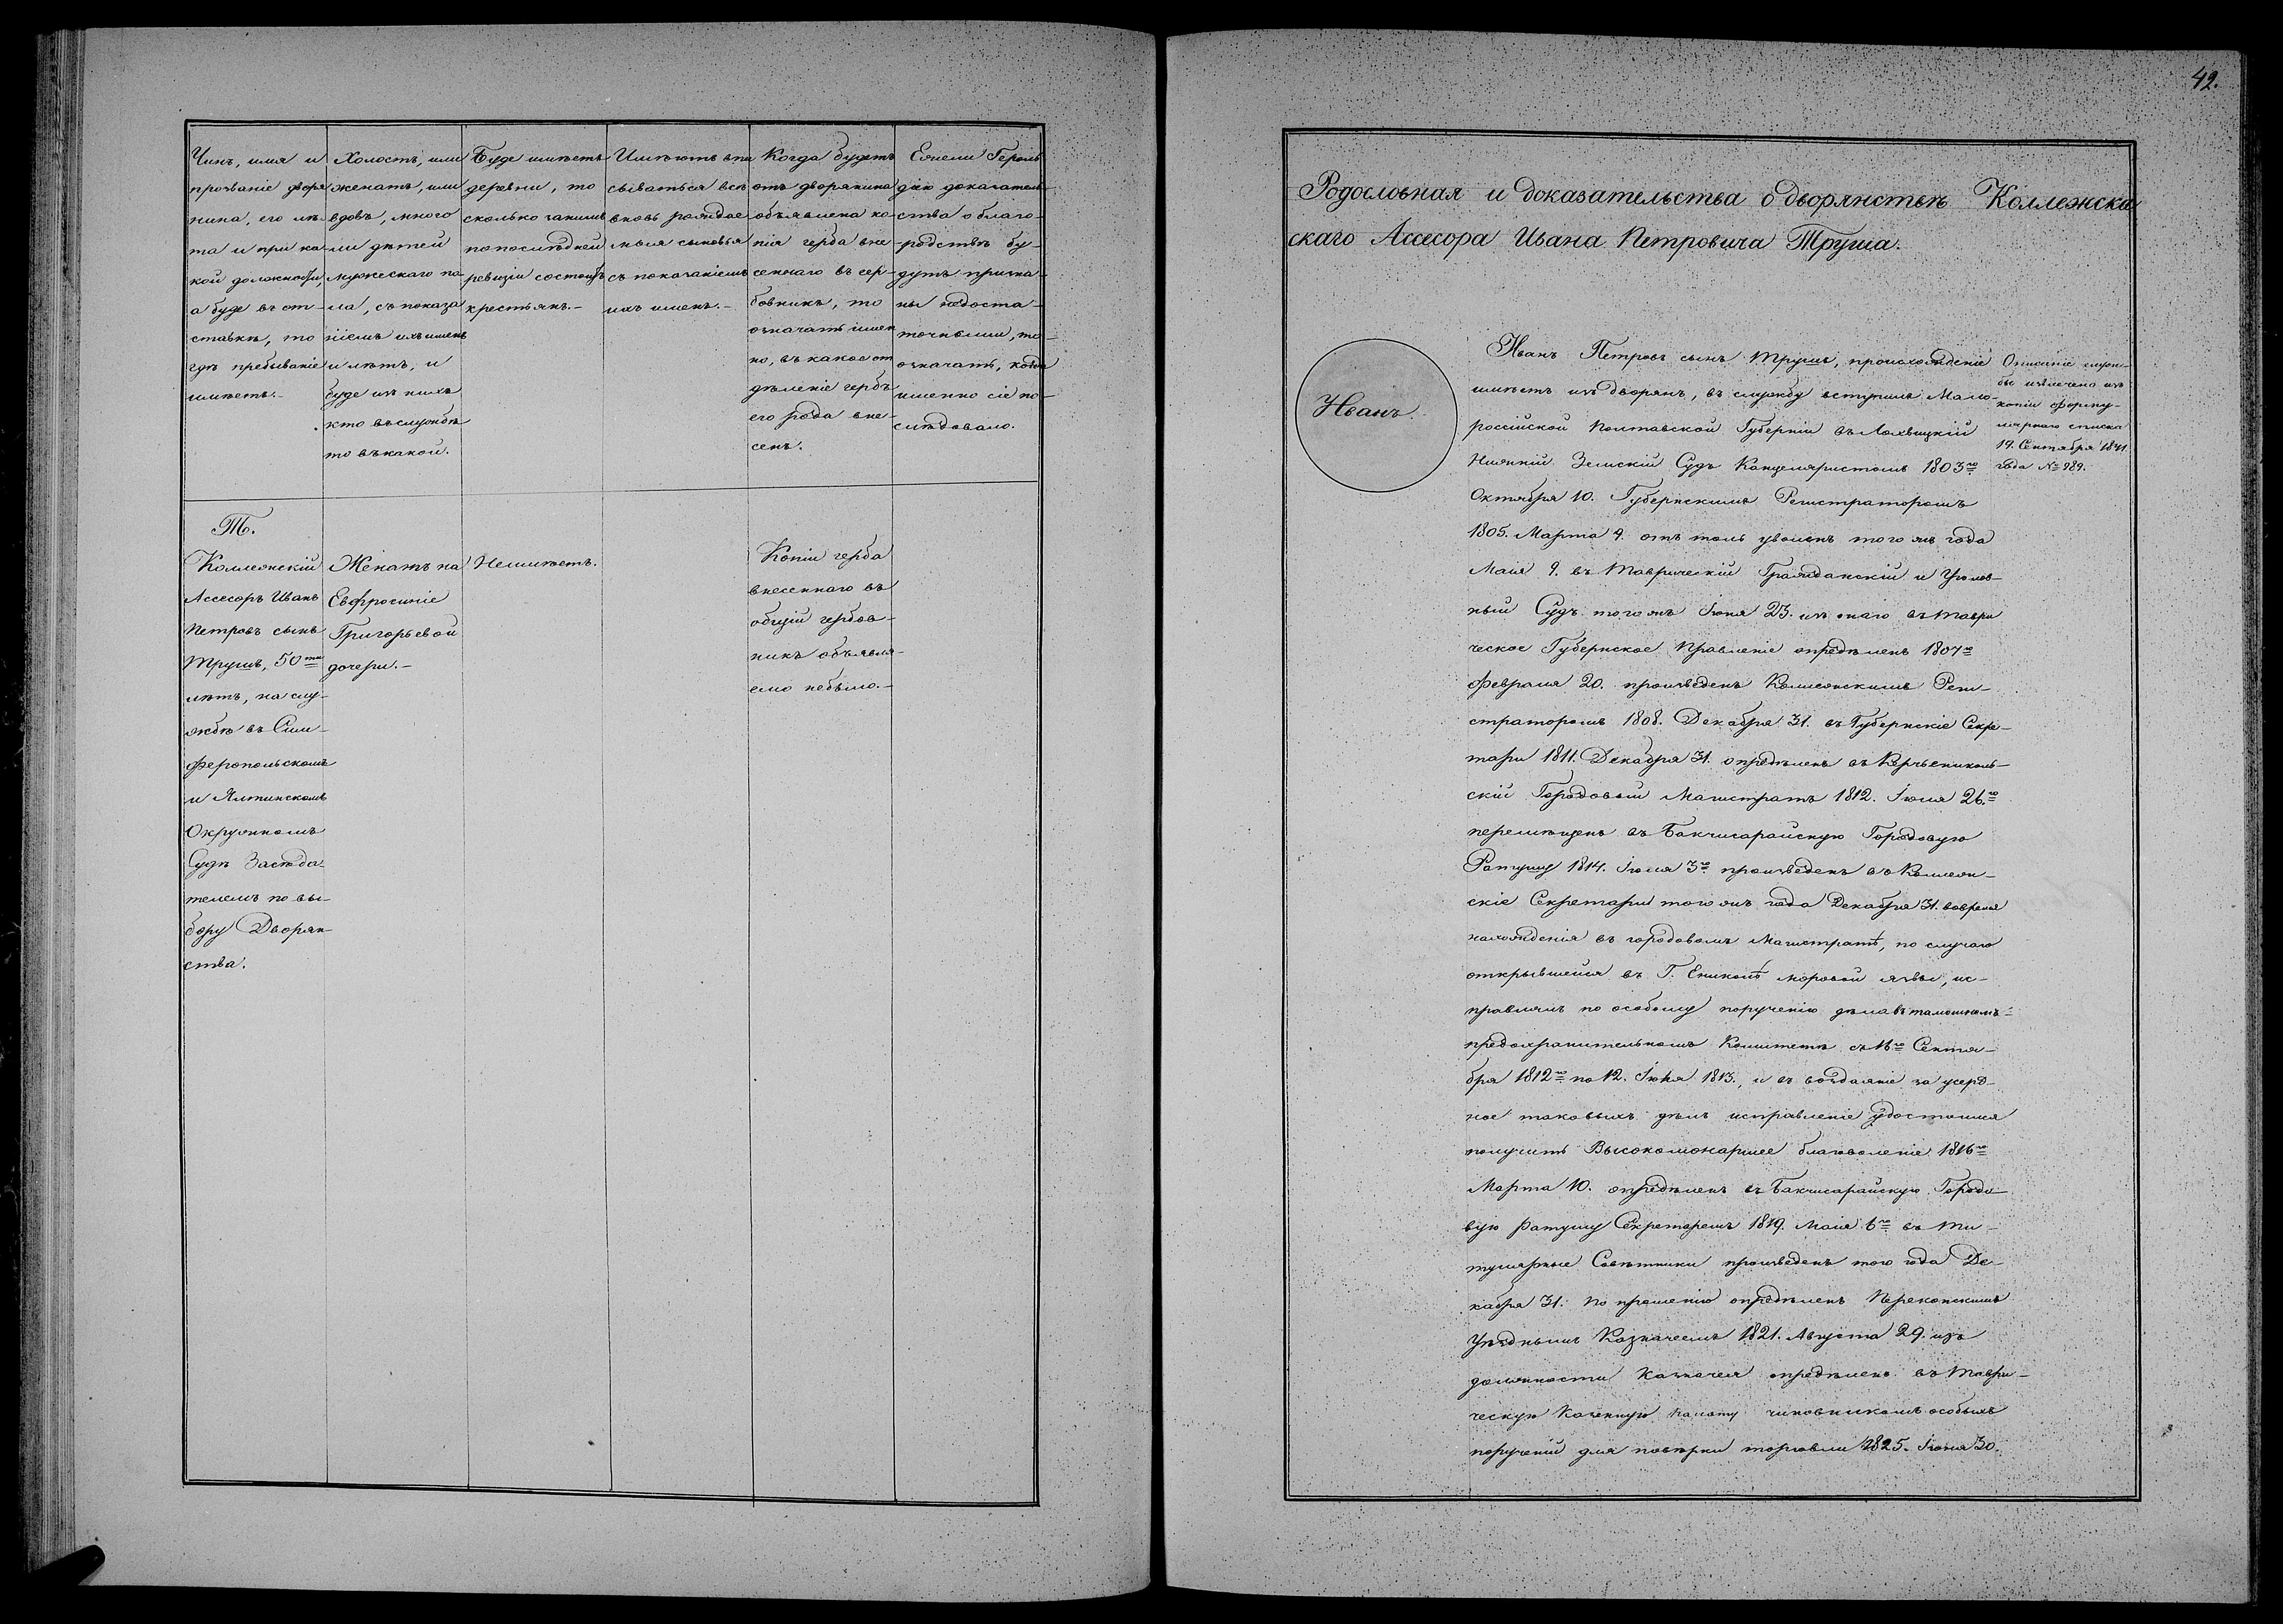 Чинъ, имя и
прозваніе дворя
нина, его лѣ-
та и при ка-
кой должности,
а буде въ от-
ставкѣ, то
гдѣ пребываніе
имѣетъ.-
Холостъ, или
женатъ, или
вдовъ, много
ли дѣтей
мужескаго по-
ла, съ показа
ніемъ ихъ именъ
и лѣтъ, и
буде изъ нихъ
кто въ службѣ
то въ какой.
Буде имѣетъ
деревни, то
сколько за нимъ
по послѣдней
ревизіи состоитъ
крестьянъ.-
Имѣютъ впи
сываться всѣ
вновь раждае
мыя сыновья
съ показаніемъ
ихъ именъ.-
Когда будетъ
отъ дворянина
объявлена ко-
пія герба вне
сеннаго въ гер-
бовникъ, то
означать имен
но, въ какое от
дѣленіе гербъ
его рода вне-
сенъ.
Ежели Героль
діею доказатель-
ства о благо-
родствѣ бу-
дутъ призна-
ны недоста-
точными, то
означать, когда
именно сіе по-
слѣдовало.
Т.
Коллежскій
Ассесоръ Иванъ
Петровъ сынъ
Трушъ, 50ти
лѣтъ, на слу-
жбѣ въ Сим-
феропольскомъ
и Ялтинскомъ
Окружномъ
Судѣ Засѣда-
телемъ по вы-
бору Дворян-
ства.
Женатъ на
Евфросиніе
Григорьевой
дочери.-
Неимѣетъ.
Копіи герба
внесеннаго въ
общій гербов-
никъ объявля-
емо небыло.-
42.
Родословная и доказательства о дворянствѣ Коллежска
скаго Ассесора Ивана Петровича Труша.
Иванъ
Иванъ Петровъ сынъ Трушъ, происхожденіе
имѣетъ изъ дворянъ, въ службу вступилъ Мало-
россійской Полтавской Губерніи въ Лохвицкій
Нижній Земскій Судъ Канцеляристомъ 1803го
Октября 10. Губернскимъ Регистраторомъ
1805. Марта 9. отъ толь уволенъ того жъ года
Маія 9. въ Таврическій Гражданскій и Уголов-
ный Судъ того жъ Іюня 23. изъ онаго въ Таври
ческое Губернское Правленіе опредѣленъ 1807го
Февраля 20. произведенъ Коллежскимъ Реги-
страторомъ 1808. Декабря 31. въ Губернскіе Секре-
тари 1811. Декабря 31. опредѣленъ въ Керчьениколь-
скій Городовый Магистратъ 1812. Іюля 26го
перемѣщенъ въ Бакчисарайскую Городовую
Ратушу 1814. Іюля 3го произведенъ въ Коллеж-
скіе Секретари того жъ года Декабря 31. вовремя
нахожденія въ городовомъ Магистратѣ, по случаю
открывшейся въ Г. Ениколѣ моровой язвы, ис-
правлялъ по особому порученію дѣла въ тамошнемъ
предохранительномъ Комитетѣ съ 16го Сентя-
бря 1812го по 12. Іюня 1813., и въ воздаяніе за усерд-
ное таковыхъ дѣлъ исправленіе удостоился
получить Высокомонаршее благоволеніе 1816го
Марта 10. опредѣленъ въ Бакчисарайскую Городо-
вую ратушу Секретаремъ 1819. Маія 6го въ Ти-
тулярные Совѣтники произведенъ того года Де-
кабря 31. по прошенію опредѣленъ Перекопскимъ
Уѣзднымъ Казначеемъ 1821. Августа 29. изъ
должности Казначея опредѣленъ въ Таври-
ческую Казенную палату чиновникомъ особыхъ
порученій для повѣрки торговли 1825. Іюня 30.
Описаніе служ-
бы извлечено изъ
копіи форму-
лярнаго списка
19. Сентября 1841.
года № 989.